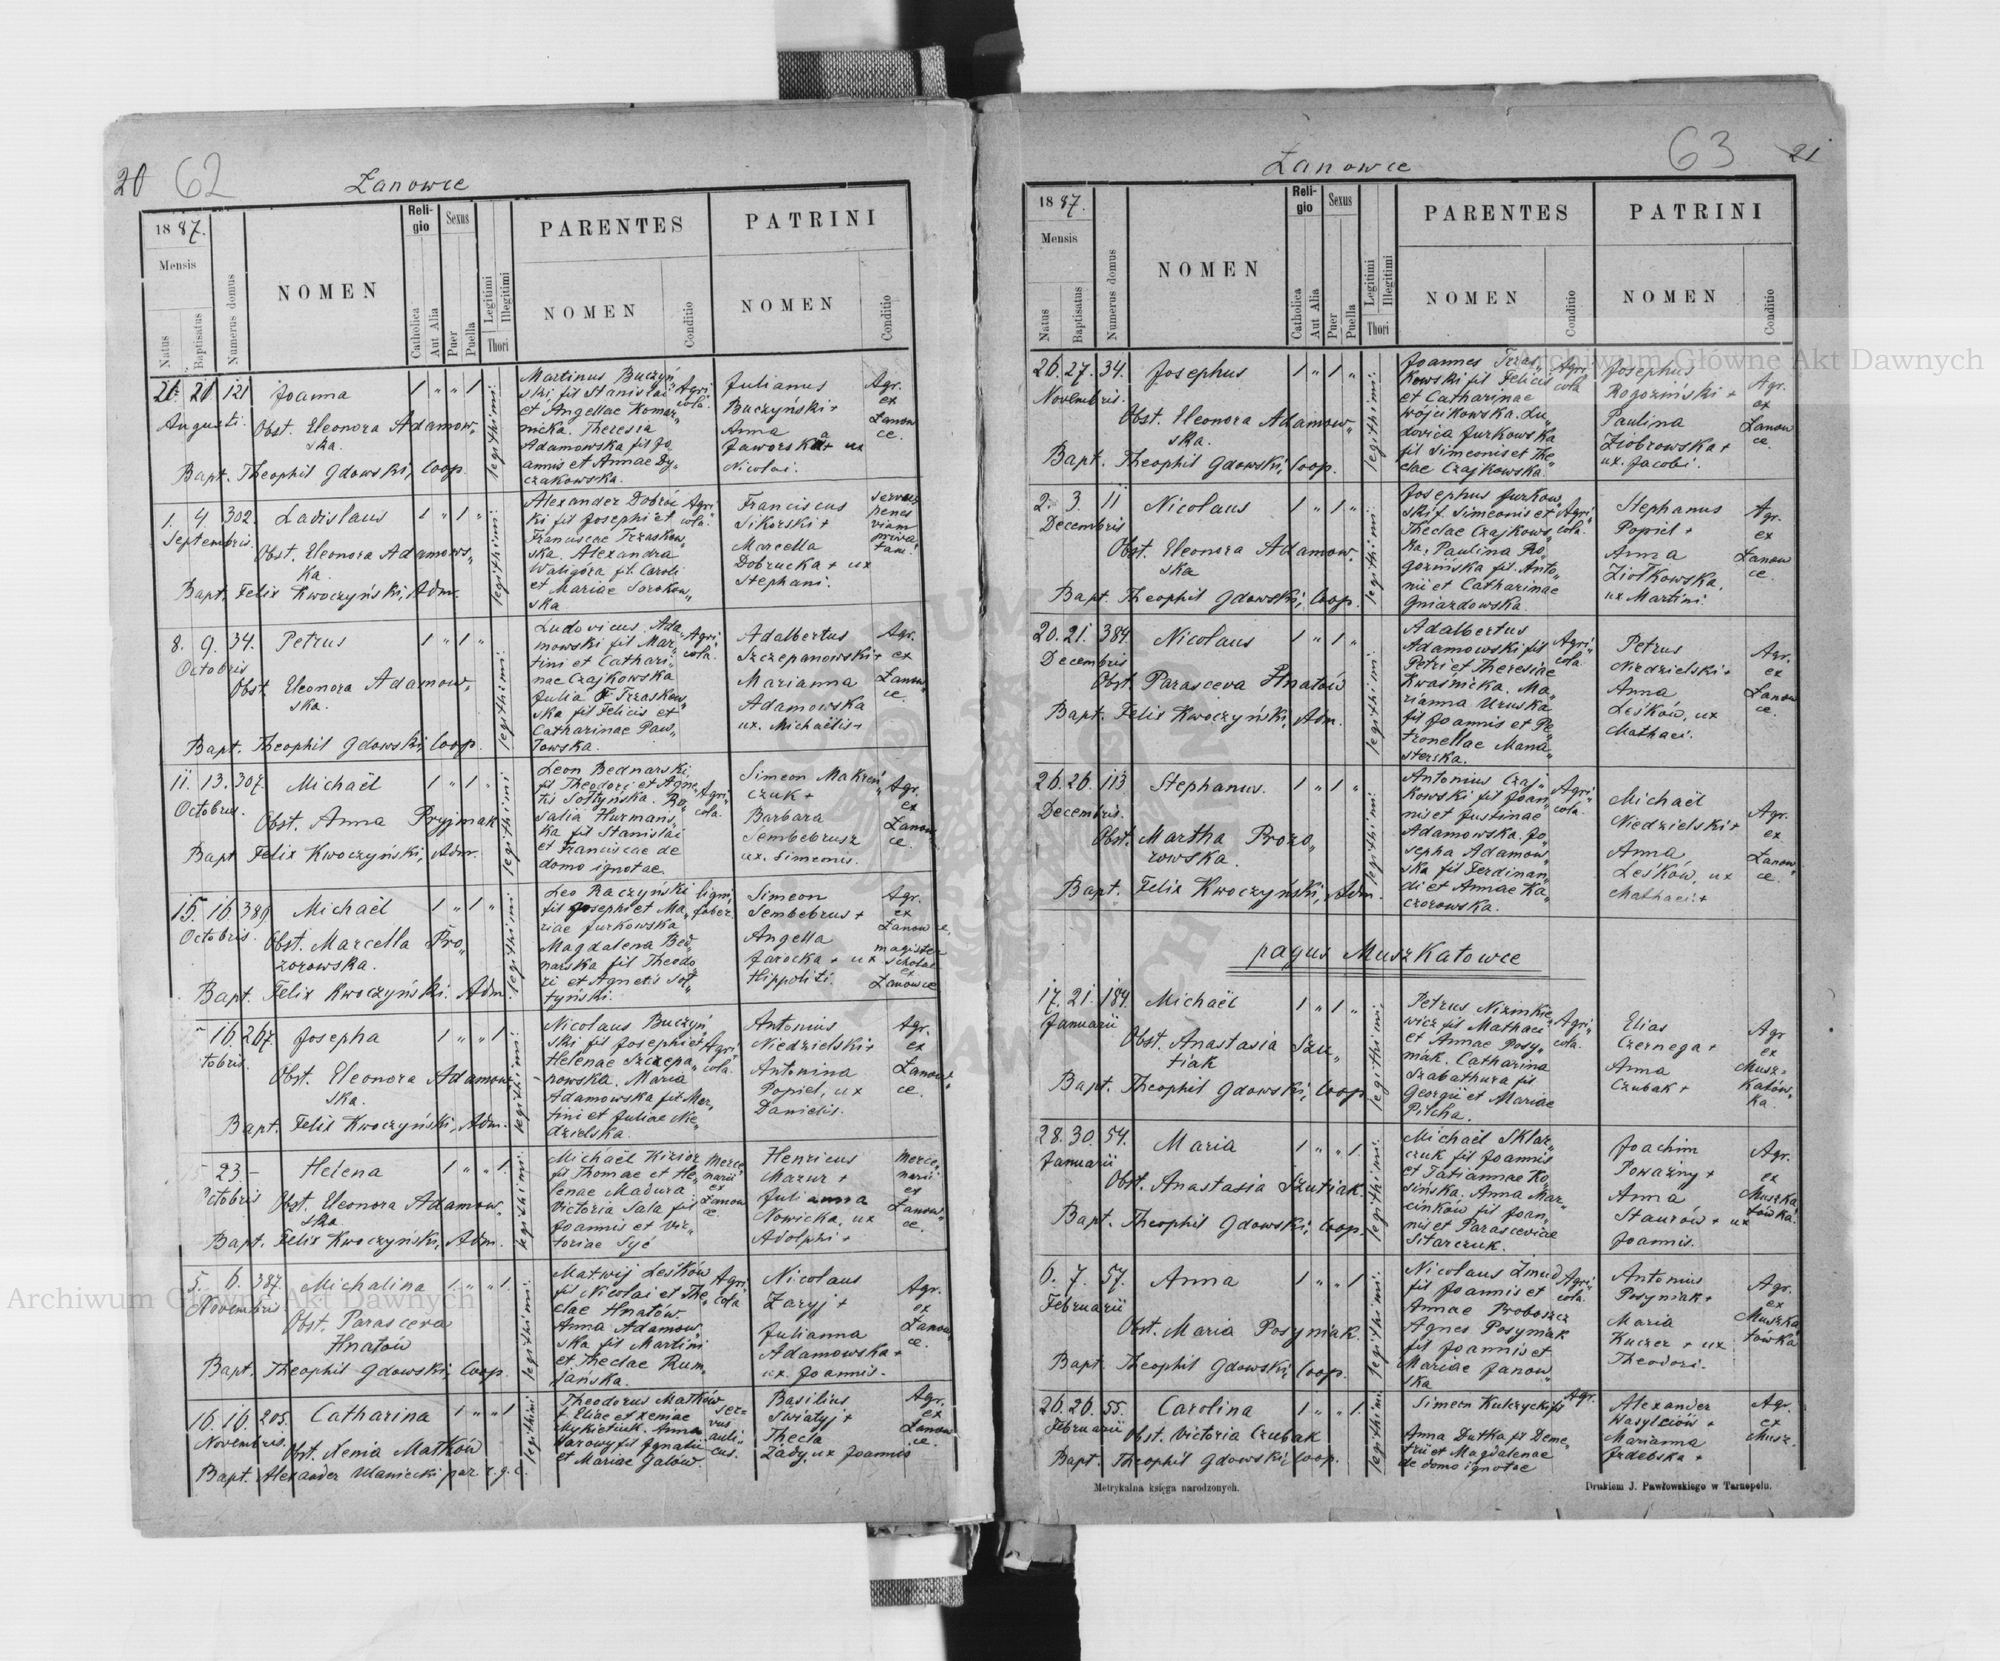 20 62
Łanowce
1887.
Mensis
Natus
Baptisatus
Numerus domus
NOMEN
Religio
Catholica
Aut Alia
Sexus
Puer
Puella
Legitimi
Illegitimi
Thori
PARENTES
NOMEN
Conditio
PATRINI
NOMEN
Conditio
20. 21 121 Joanna 1 " " 1
Augusti. Obst. Eleonora Adamow„
ska.
Bapt. Theophil Gdowski, Coop.
legithimi.
Martinus Buczyń„
ski fil Stanislai
et Angellae Komar„
nicka. Theresia
Adamowska fil Jo„
annis et Annae Dy„
czakowska.
Agri„
cola.
Julianus
Buczyński +
Anna
Jaworska + ux
Nicolai.
Agr.
ex
Łanow
ce.
1. 4. 302. Ladislaus 1 " 1 "
Septembris. Obst. Eleonora Adamows„
ka.
Bapt. Felix Kwoczyński, Adm.
legithimi.
Alexander Dobruc
ki fil Josephi et
Franciscae Trzaskow„
ska. Alexandra
Waligóra fil. Caroli
et Mariae Sorokow„
ska
Agri„
cola.
Franciscus
Sikorski +
Marcella
Dobrucka + ux
Stephani.
servus
penes
viam
priva
tam.
8. 9. 34. Petrus 1 " 1 "
Octobris
Obst. Eleonora Adamow„
ska.
Bapt. Theophil Gdowski, Coop.
legithimi.
Ludovicus Ada„
mowski fil Mar„
tini et Cathari„
nae Czajkowska
Julia Trzaskow„
ska fil Felicis et
Catharinae Paw„
łowska.
Agri„
cola.
Adalbertus
Szczepanowski +
Marianna
Adamowska
ux. Michaëlis +
Agr.
ex
Łanow„
ce.
11. 13. 307. Michaël 1 " 1 "
Octobris. Obst. Anna Pryjmak
Bapt Felix Kwoczyński, Adm.
legithimi
Leon Bednarski,
fil Theodori et Agne„
tis Sołtyńska. Ro„
salia Hurmańs„
ka fil Stanislai
et Franciscae de
domo ignotae.
Agri„
cola.
Simeon Makień„
czuk +
Barbara
Sembebrusz
ux. Simeonis.
Agr.
ex
Łanow
ce.
15. 16 389 Michaël 1 " 1 "
Octobris. Obst. Marcella Pro„
zorowska.
Bapt. Felix Kwoczyński. Adm.
legithimi
Leo Raczynski
fil Josephi et Ma„
riae Jurkowska
Magdalena Bed„
narska fil Theodo
ri et Agnetis Soł„
tyński.
ligni„
faber
Simeon
Sembebrus +
Angella
Jarocka + ux
Hippoliti.
Agr.
ex
Łanowce,
magister
scholae
ex
Łanowce
16. 267. Josepha 1 " " 1
tobris. Obst. Eleonora Adamow„
ska.
Bapt. Felix Kwoczyński, Adm.
legithimi.
Nicolaus Buczyń„
ski fil Josephi et
Helenae Szczepa„
nowska. Maria
Adamowska fil Mar„
tini et Juliae Nie„
dzielska.
Agri„
cola.
Antonius
Niedzielski +
Antonina
Popiel, ux
Danielis.
Agr.
ex
Łanow„
ce.
23. – Helena 1 " " 1.
Octobris Obst. Eleonora Adamow„
ska
Bapt. Felix Kwoczyński, Adm.
legithimi.
Michaël Kizior
fil Thomae et He„
lenae Madura
Victoria Sala fil
Joannis et Vic„
toriae Syć
merce„
narii
ex
Łanow
ce.
Henricus
Mazur +
Julianna
Nowicka, ux
Adolphi +
merce„
narii
ex
Łanow„
ce.
5. 6. 387. Michalina 1. " " 1.
Novembris Obst. Parasceva
Hnatów
Bapt. Theophil Gdowski, Coop.
legithimi.
Matwij Leśków
fil Nicolai et The„
clae Hnatów.
Anna Adamow„
ska fil Martini
et Theclae Rum„
jańska.
Agri„
cola
Nicolaus
Zaryj +
Julianna
Adamowska +
ux. Joannis.
Agr.
ex
Łanow„
ce.
16. 16. 205. Catharina 1 " " 1
Novembris. Obst. Xenia Małków
Bapt. Alexander Ulaniecki par r. g. c.
legithimi
Theodorus Małków
f. Eliae et Xeniae
Mykietiuk. Anna
Harowy fil Ignatii
et Mariae Gałów.
ser„
vus
auli„
cus.
Basilius
Swiatyj +
Thecla
Zady, ux Joannis
Agr.
ex
Łanow
ce.
63 21
Łanowce
1887.
Mensis
Natus
Baptisatus
Numerus domus
NOMEN
Religio
Catholica
Aut Alia
Sexus
Puer
Puella
Legitimi
Illegitimi
Thori
PARENTES
NOMEN
Conditio
PATRINI
NOMEN
Conditio
26. 27. 34. Josephus 1 " 1 "
Novembris.
Obst. Eleonora Adamow„
ska.
Bapt. Theophil Gdowski, Coop.
legithimi.
Joannes Trzas„
kowski fil Felicis
et Catharinae
Wójcikowska. Lu„
dovica Jurkowska
fil Simeonis et The„
clae Czajkowska.
Agri„
cola
Josephus
Rogoziński +
Paulina
Ziobrowska +
ux. Jacobi.
Agr.
ex
Łanow
ce.
2. 3. 11 Nicolaus 1 " 1 "
Decembris
Obst. Eleonora Adamow„
ska
Bapt. Theophil Gdowski, Coop.
legithimi.
Josephus Jurkow„
ski f. Simeonis et
Theclae Czajkows„
ka, Paulina Ro„
gozińska fil. Anto„
nii et Catharinae
Gniazdowska.
Agri„
cola.
Stephanus
Popiel +
Anna
Ziółkowska,
ux Martini.
Agr.
ex
Łanow
ce.
20. 21. 384. Nicolaus 1 " 1 "
Decembris
Obst. Parasceva Hnatów
Bapt. Felix Kwoczyński, Adm.
legithimi.
Adalbertus
Adamowski fil
Petri et Theresiae
Kwaśnicka. Ma„
rianna Uruska
fil Joannis et Pe„
tronellae Mana„
sterska.
Agri„
cola.
Petrus
Niedzielski +
Anna
Leśków, ux
Mathaei.
Agr.
ex
Łanow
ce.
26. 26. 113 Stephanus. 1 " 1 "
Decembris.
Obst. Martha Prozo„
rowska.
Bapt. Felix Kwoczyński, Adm.
legithimi.
Antonius Czaj„
kowski fil Joan„
nis et Justinae
Adamowska. Jo„
sepha Adamow„
ska fil Ferdinan„
di et Annae Ka„
czorowska.
Agri„
cola.
Michaël
Niedzielski +
Anna
Leśków, ux
Mathaei +
Agr.
ex
Łanow„
ce.
pagus Muszkatowce
17. 21. 184. Michaël 1 " 1 "
Januarii
Obst. Anastasia Szu„
tiak
Bapt. Theophil Gdowski, Coop.
legithimi.
Petrus Nizinkie„
wicz fil Mathaei
et Annae Posy„
niak. Catharina
Szabathura fil
Georgii et Mariae
Pilcha.
Agri„
cola.
Elias
Czernega +
Anna
Czubak +
Agr
ex
Musz„
katów„
ka.
28. 30. 54. Maria 1 " " 1.
Januarii
Obst. Anastasia Szutiak.
Bapt. Theophil Gdowski, Coop.
legithimi.
Michaël Sklar„
czuk fil Joannis
et Tatiannae Ko„
sińska. Anna Mar„
cinków fil Joan„
nis et Parasceviae
Sitarczuk.
Joachim
Poważny +
Anna
Staurów + ux
Joannis.
Agr.
ex
Muszka
tówka.
6. 7. 57. Anna 1 " " 1.
Februarii
Obst. Maria Posyniak.
Bapt. Theophil Gdowski, Coop.
legithimi.
Nicolaus Żmud
fil Joannis et
Annae Proboszcz
Agnes Posyniak
fil Joannis et
Mariae Janow„
ska
Agri„
cola.
Antonius
Posyniak +
Maria
Kuczer + ux
Theodori.
Agr.
ex
Muszka
tówka
26. 26. 55. Carolina 1 " " 1.
Februarii Obst. Victoria Czubak
Bapt. Theophil Gdowski, Coop.
legithimi
Simeon Kulczycki fil
Anna Dutka fil Deme„
trii et Magdalenae
de domo ignotae
Agr.
Alexander
Wasylciów +
Marianna
Grdebska +
Agr.
ex
Musz.
Metrykalna księga narodzonych.
Drukiem J. Pawłowskiego w Tarnopolu.
Archiwum Główne Akt Dawnych
Archiwum Główne Akt Dawnych